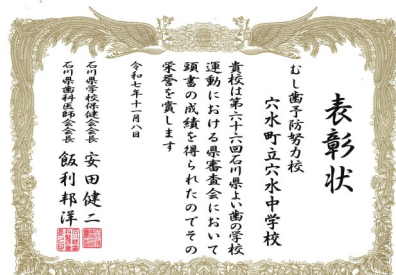 表彰状
むし歯予防努力校
穴水町立穴水中学校
貴校は第六十六回石川県よい歯の学校
運動における県審査会において
頭書の成績を得られたのでその
栄誉を賞します
令和七年十一月八日
石川県学校保健会会長 安田健二
石川県歯科医師会会長 飯利邦洋